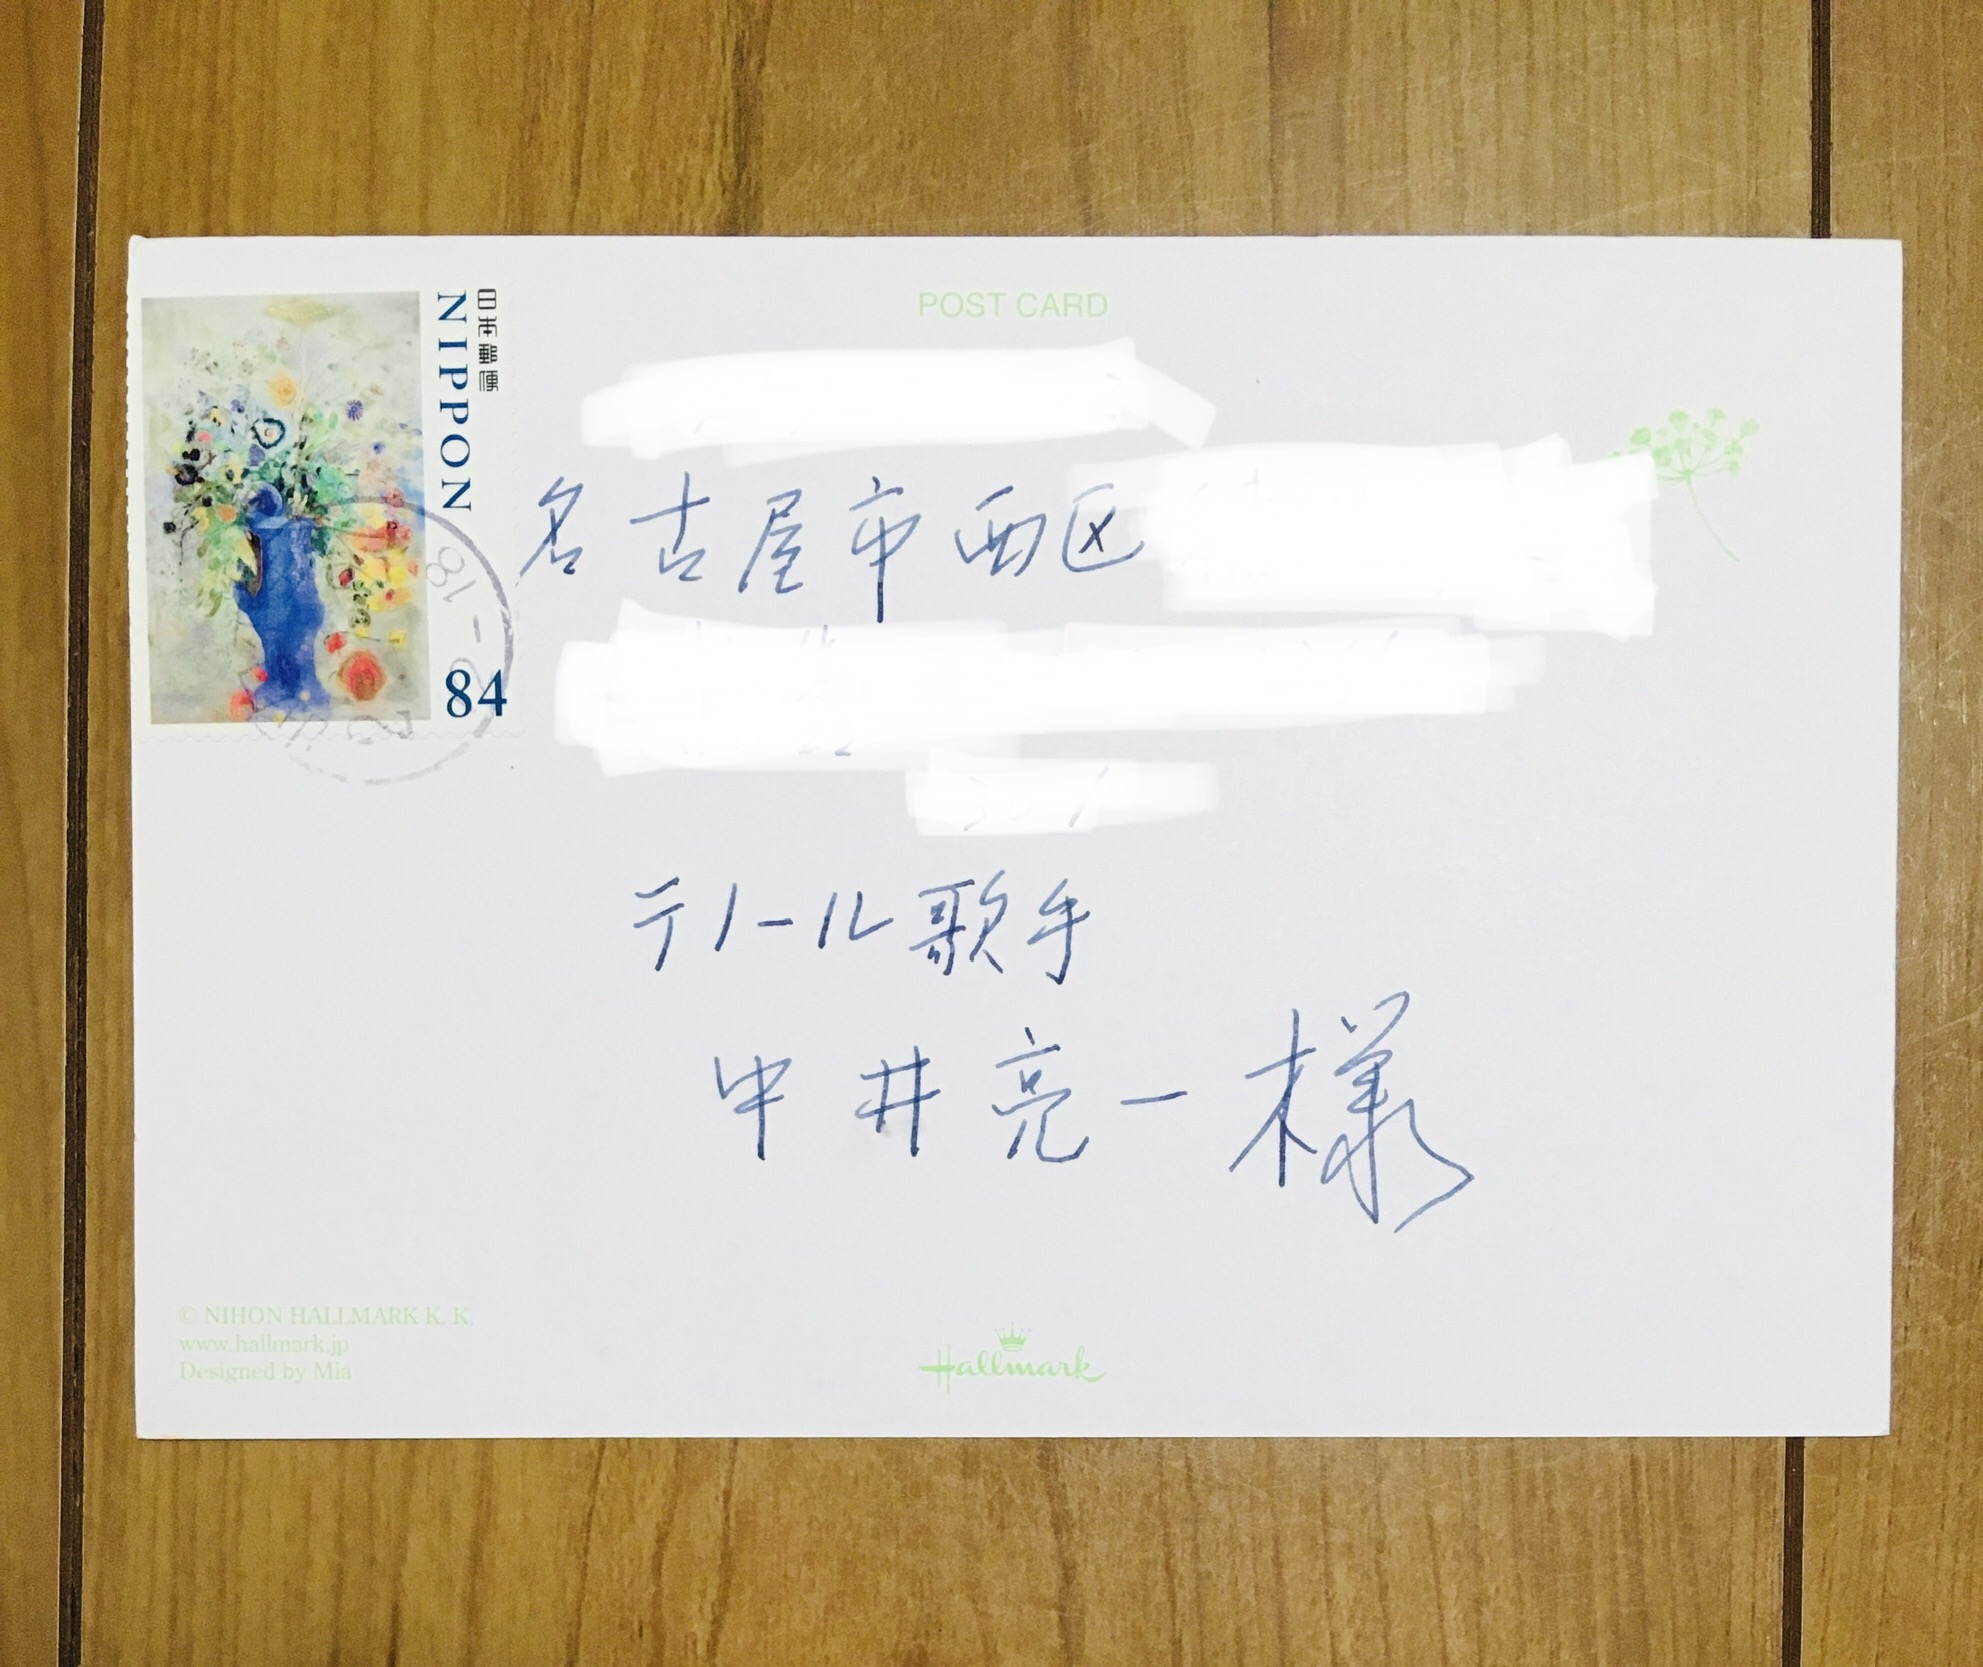 日本郵便
NIPPON
84
POST CARD
名古屋市西区
301
テノール歌手
中井亮一様
© NIHON HALLMARK K. K.
www.hallmark.jp
Designed by Mia
Hallmark